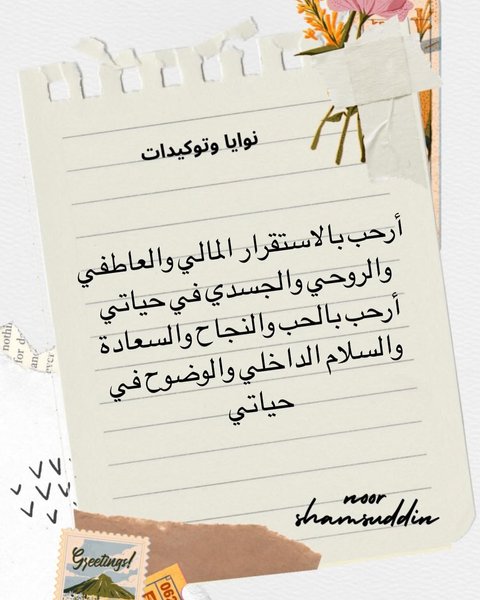 نوايا وتوكيدات
أرحب بالاستقرار المالي والعاطفي
والروحي والجسدي في حياتي
أرحب بالحب والنجاح والسعادة
والسلام الداخلي والوضوح في
حياتي
nothin
for d
and
ever
noor
shamsuddin
Greetings!